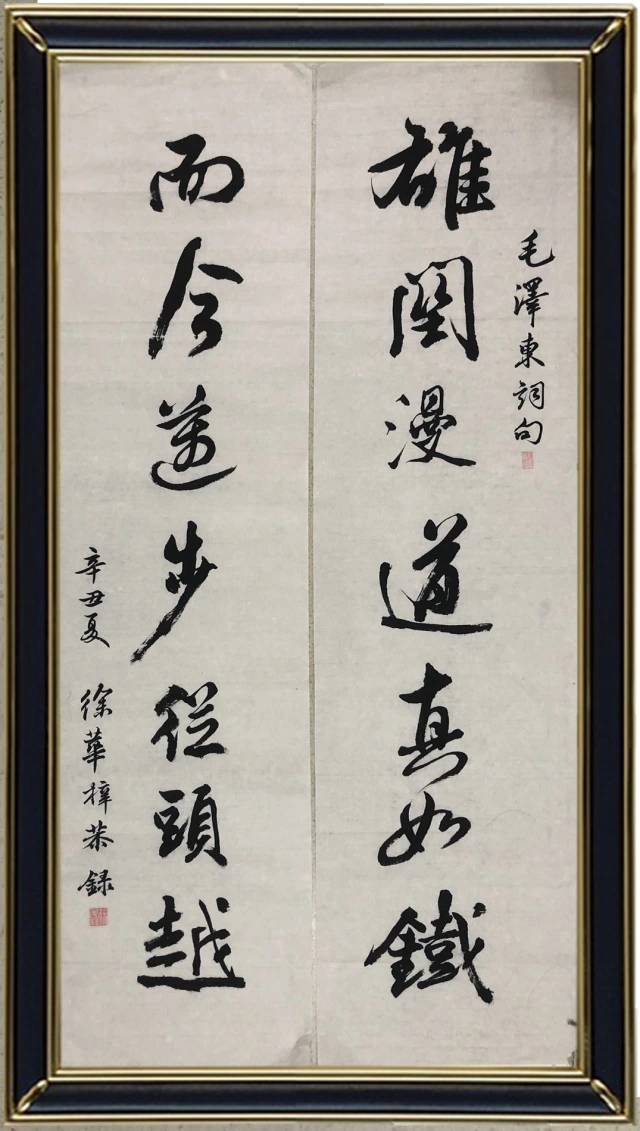 毛澤東詞句
雄関漫道真如鐵
而今邁步從頭越
辛丑夏
徐華梓恭録